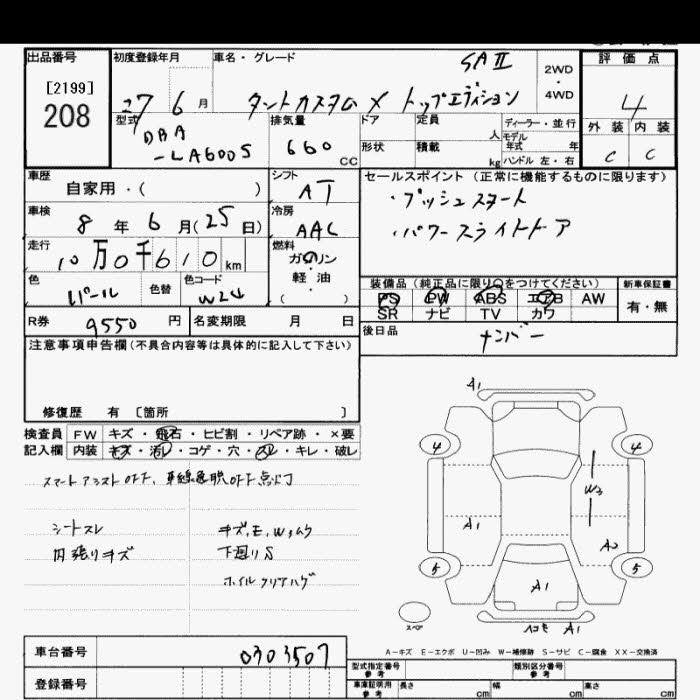 出品番号
[2199]
208
初度登録年月
27 6 月
車名・グレード
SAⅡ
タントカスタム X トップエディション
2WD
・
4WD
評価点
4
外装 内装
C C
型式
DBA
-LA600S
排気量
660 CC
ドア
形状
定員 人
積載 kg
ディーラー・並行
モデル
年式 年
ハンドル 左・右
車歴
自家用・( )
シフト
AT
セールスポイント (正常に機能するものに限ります)
・プッシュスタート
・パワースライドドア
車検
8 年 6 月(25 日)
冷房
AAC
走行
10 万 0 千 6 1 0 km
燃料
ガソリン
軽・油
( )
色
パール
色替
色コード
W24
装備品(純正品に限り○をつけてください)
PS PW ABS エアB AW
SR ナビ TV カワ
新車保証書
有・無
R券
9550 円
名変期限 月 日
後日品
ナンバー
注意事項申告欄(不具合内容等は具体的に記入して下さい)
修復歴 有 〔箇所 〕
検査員
記入欄
FW キズ・飛石・ヒビ割・リペア跡・×要
内装 キズ・汚レ・コゲ・穴・スレ・キレ・破レ
スマートアシストOFF、車線逸脱OFF点灯
シートスレ
内張りキズ
キズ,E,Wヨムラ
下廻りS
ホイルクリアハゲ
A1
4
4
W3
A1
A2
5
5
A1
スペア
ヘコモ A1
A-キズ E-エクボ U-凹み W-補修跡 S-サビ C-腐食 XX-交換済
車台番号
0303507
登録番号
型式指定番号
参考
類別区分番号
参考
車庫証明用
参考
長さ cm
幅 cm
高さ cm